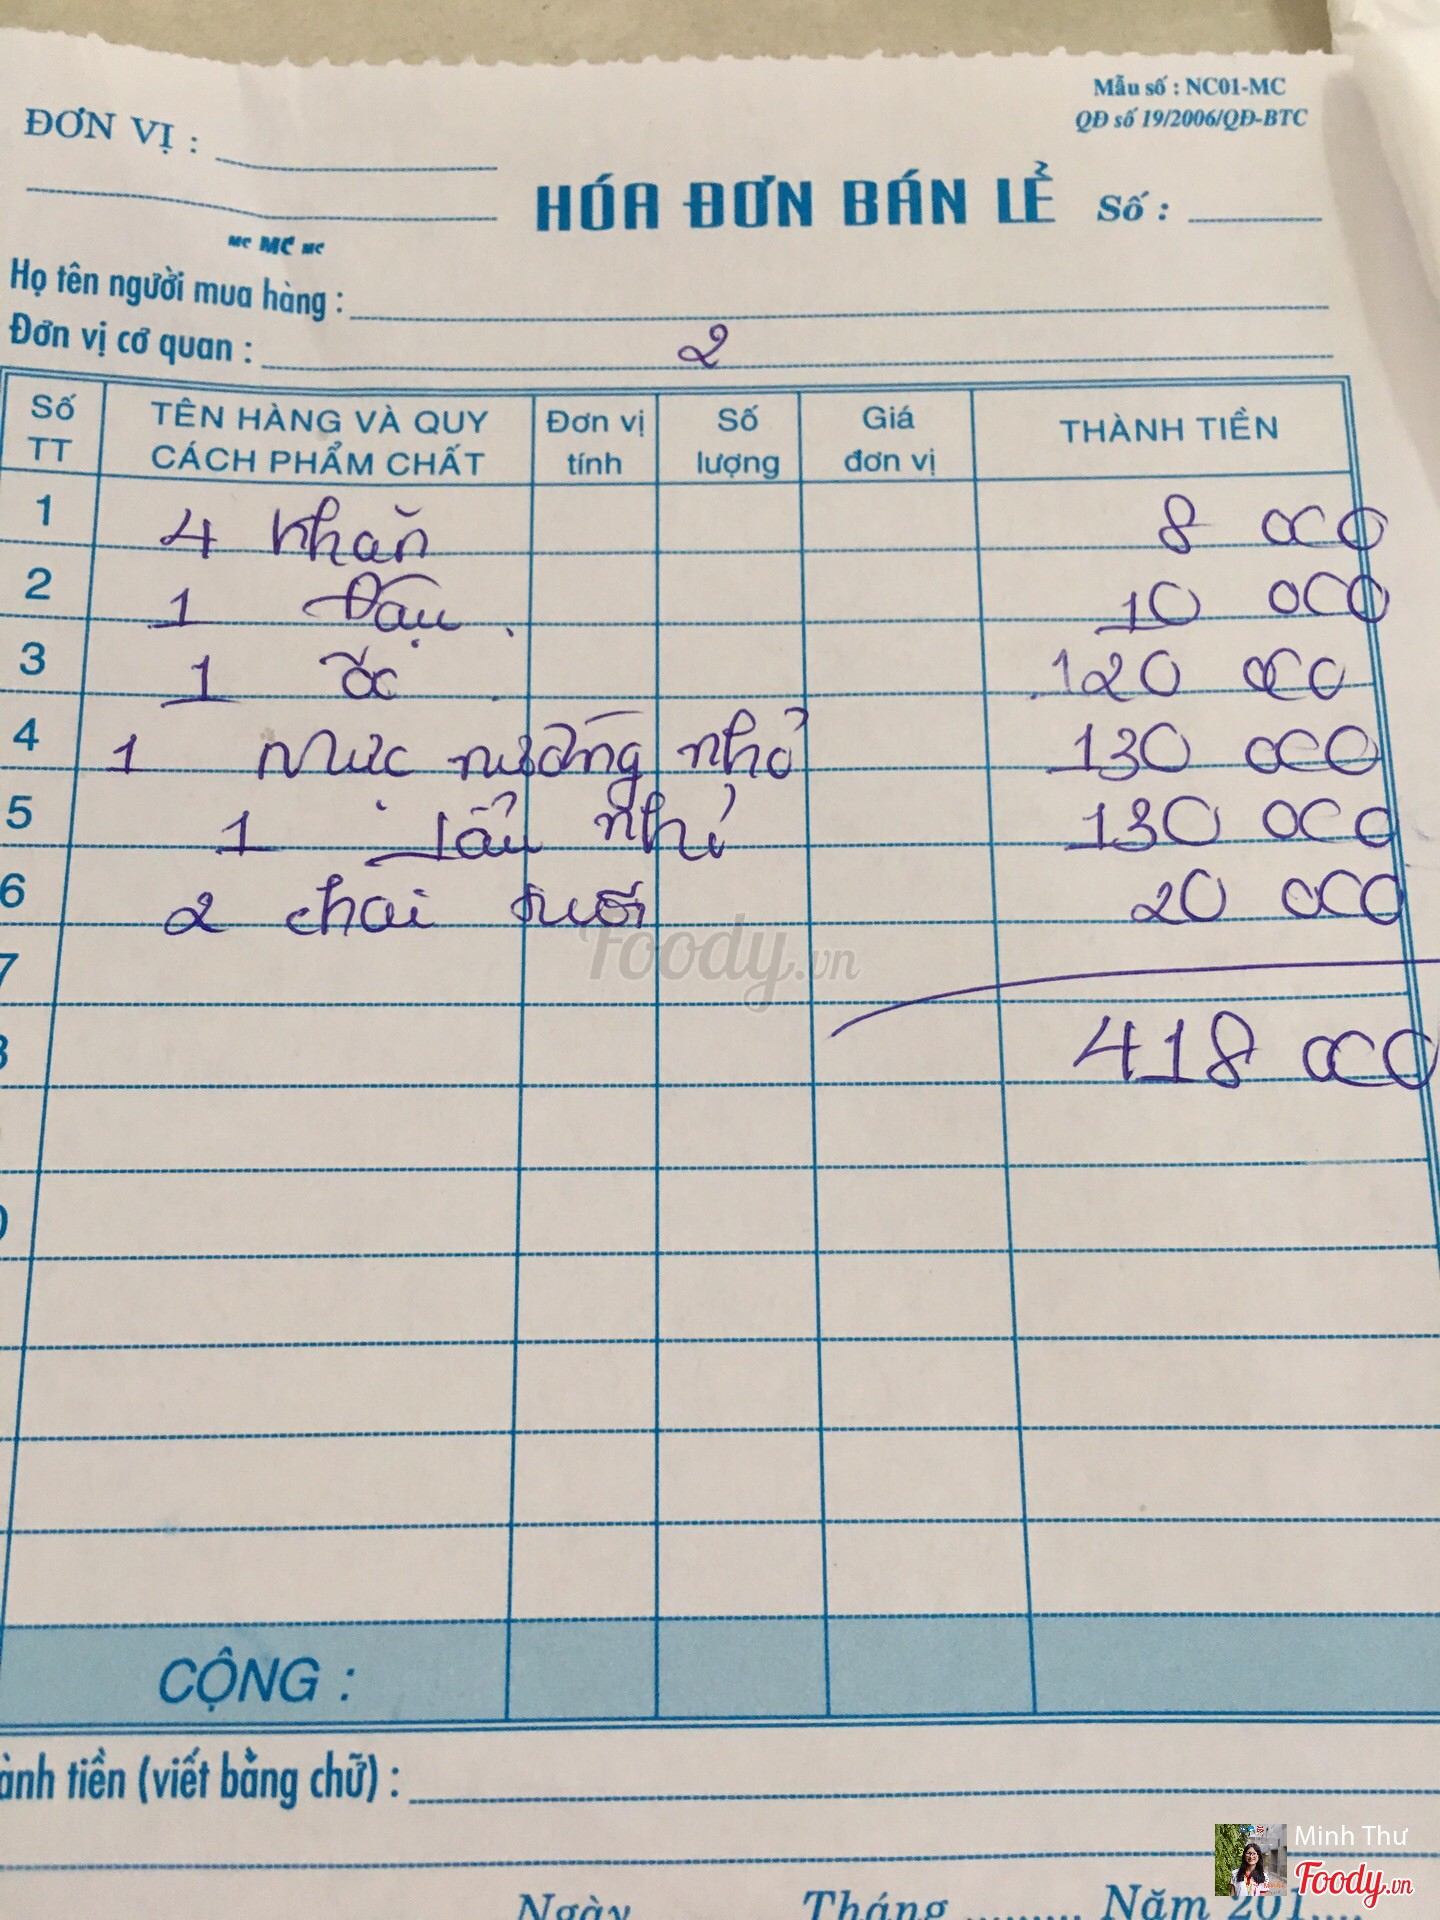 Mẫu số : NC01-MC
QĐ số 19/2006/QĐ-BTC
ĐƠN VỊ :
HÓA ĐƠN BÁN LẺ Số :
MC MC MC
Họ tên người mua hàng :
Đơn vị cơ quan : 2
Số TT TÊN HÀNG VÀ QUY CÁCH PHẨM CHẤT Đơn vị tính Số lượng Giá đơn vị THÀNH TIỀN
1 4 khăn 8 000
2 1 Đậu 10 000
3 1 ốc 120 000
4 1 Mực nướng nhỏ 130 000
5 1 lẩu nhỏ 130 000
6 2 chai suối 20 000
7
418 000
CỘNG :
ành tiền (viết bằng chữ) :
Ngày Tháng ......... Năm 201....
Foody.vn
Minh Thư
Foody.vn